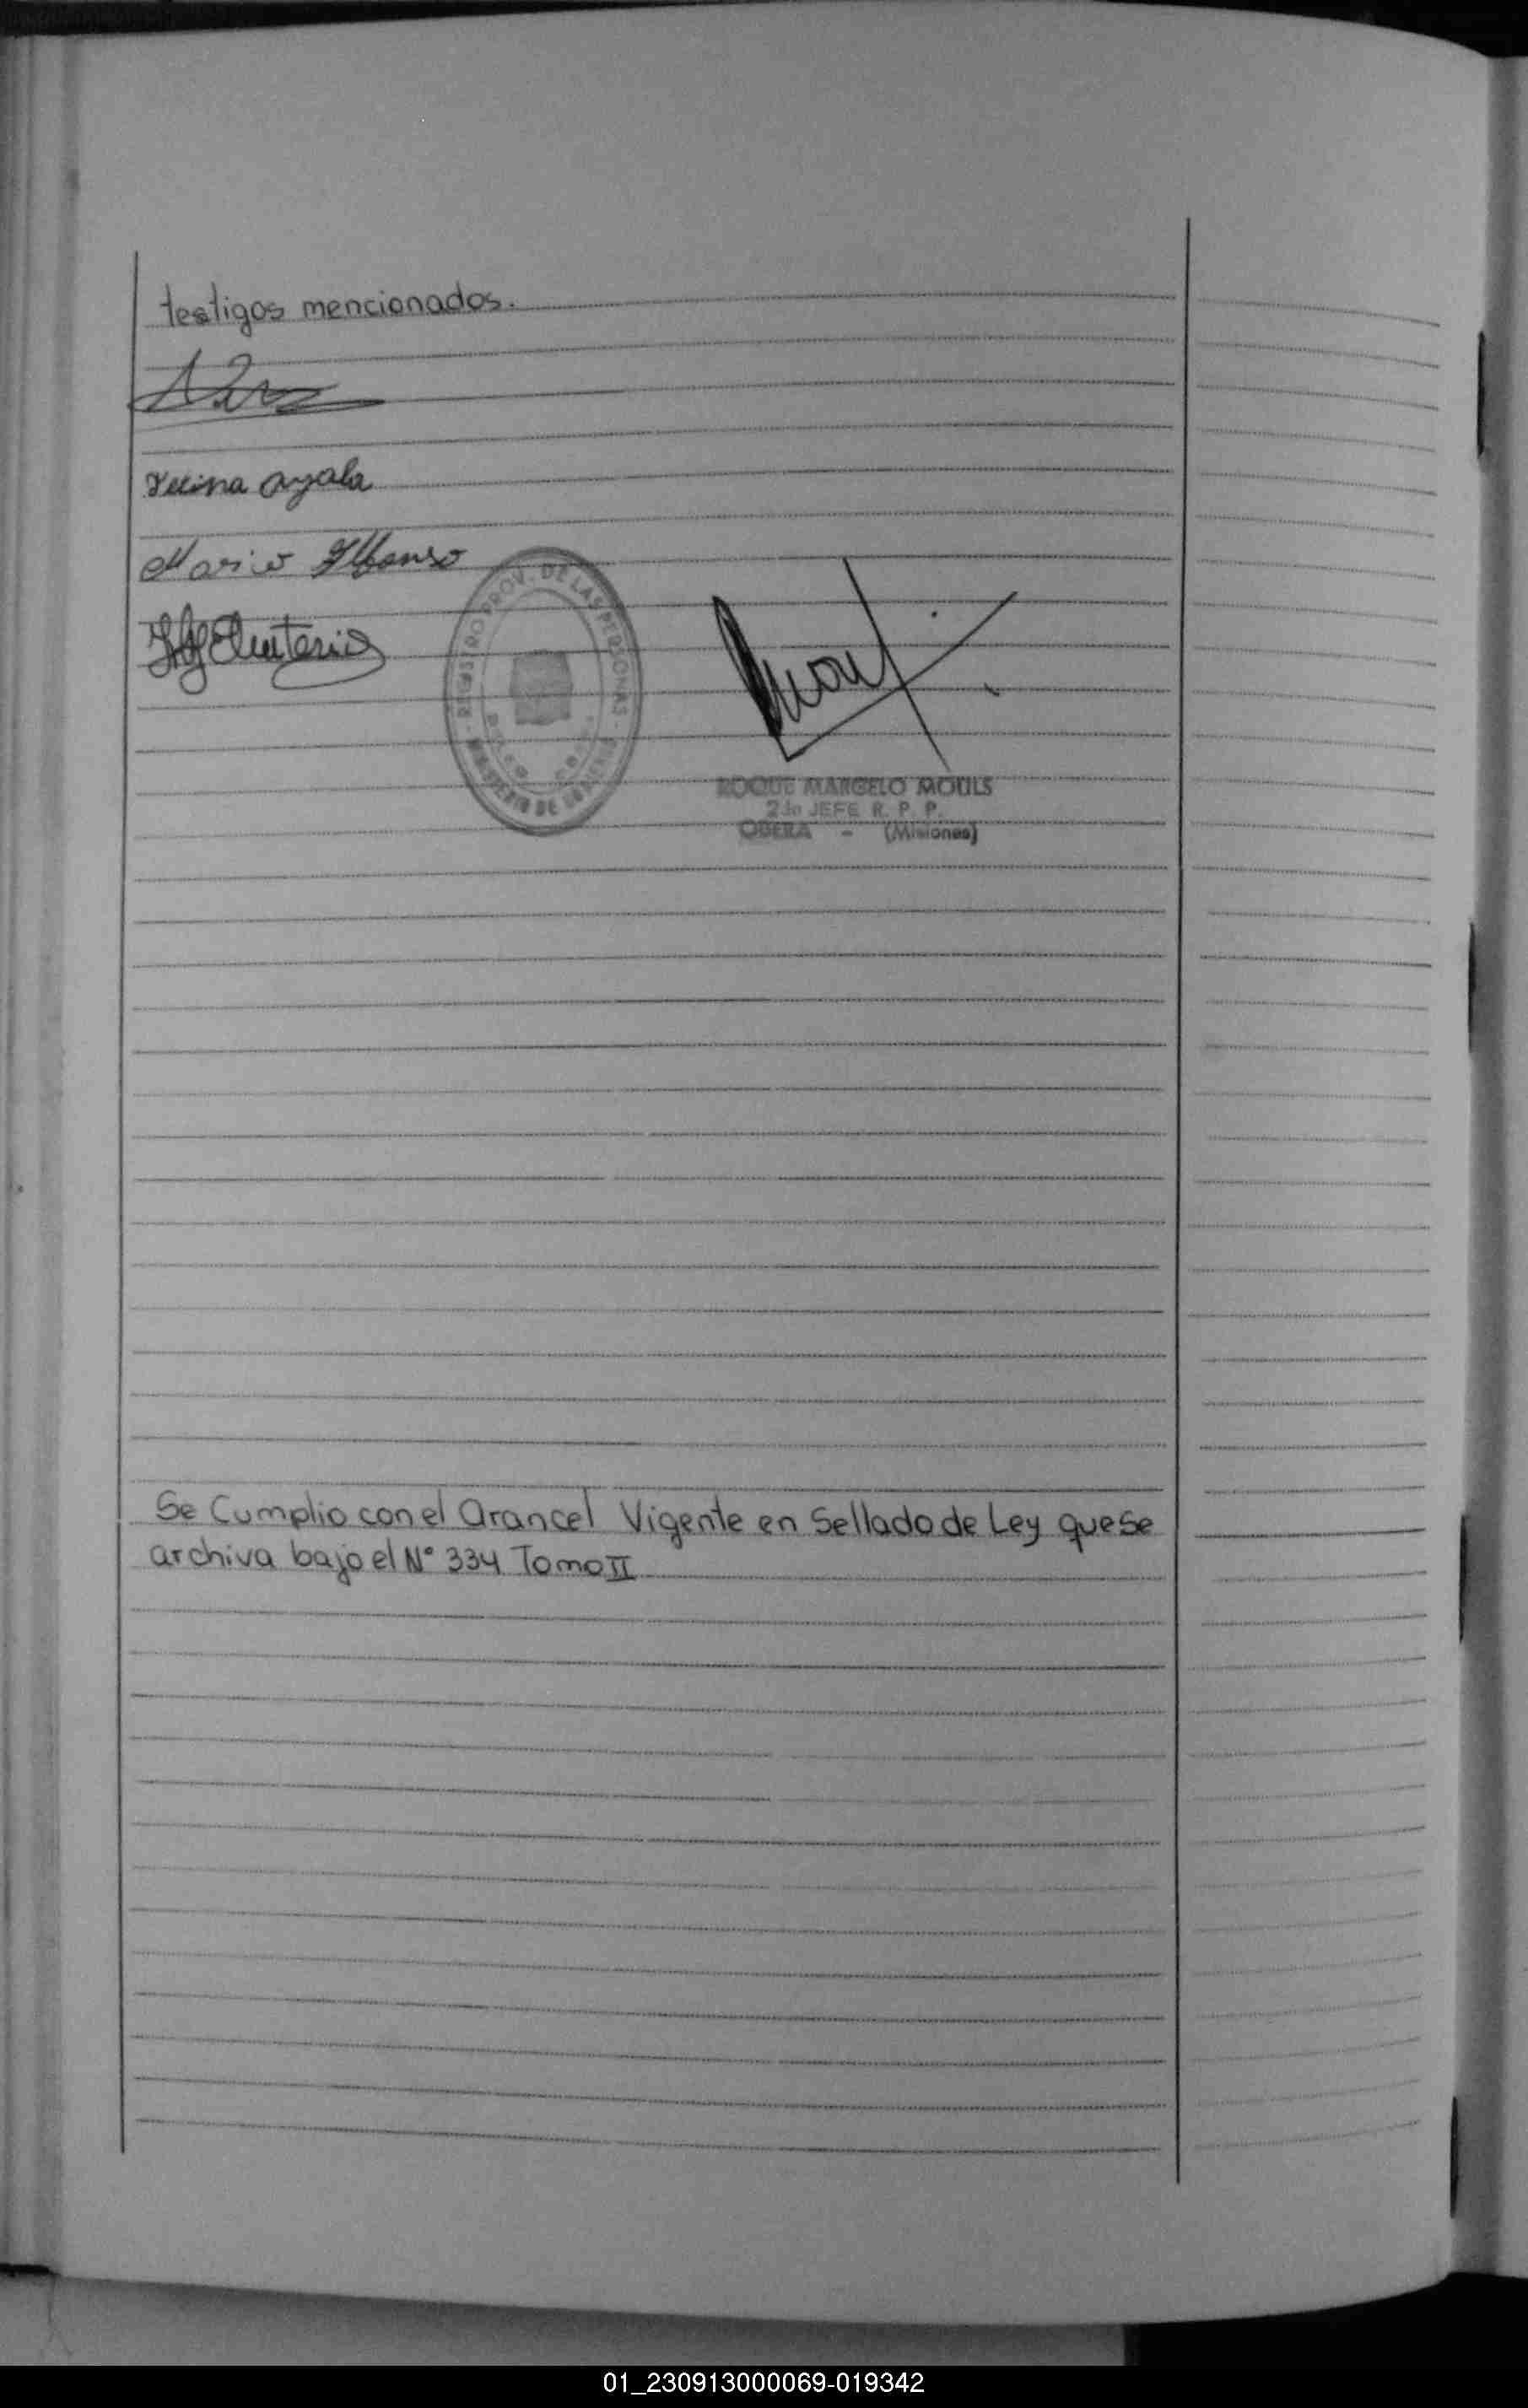 testigos mencionados.
ayala
Mario Alfonso
REGISTRO PROV. DE LAS PERSONAS
MINISTERIO DE GOBIERNO
ROQUE MARCELO MOULS
2do JEFE R. P. P.
OBERA - (Misiones)
Se Cumplio con el arancel Vigente en Sellado de Ley que se
archiva bajo el N° 334 Tomo II
01_230913000069-019342